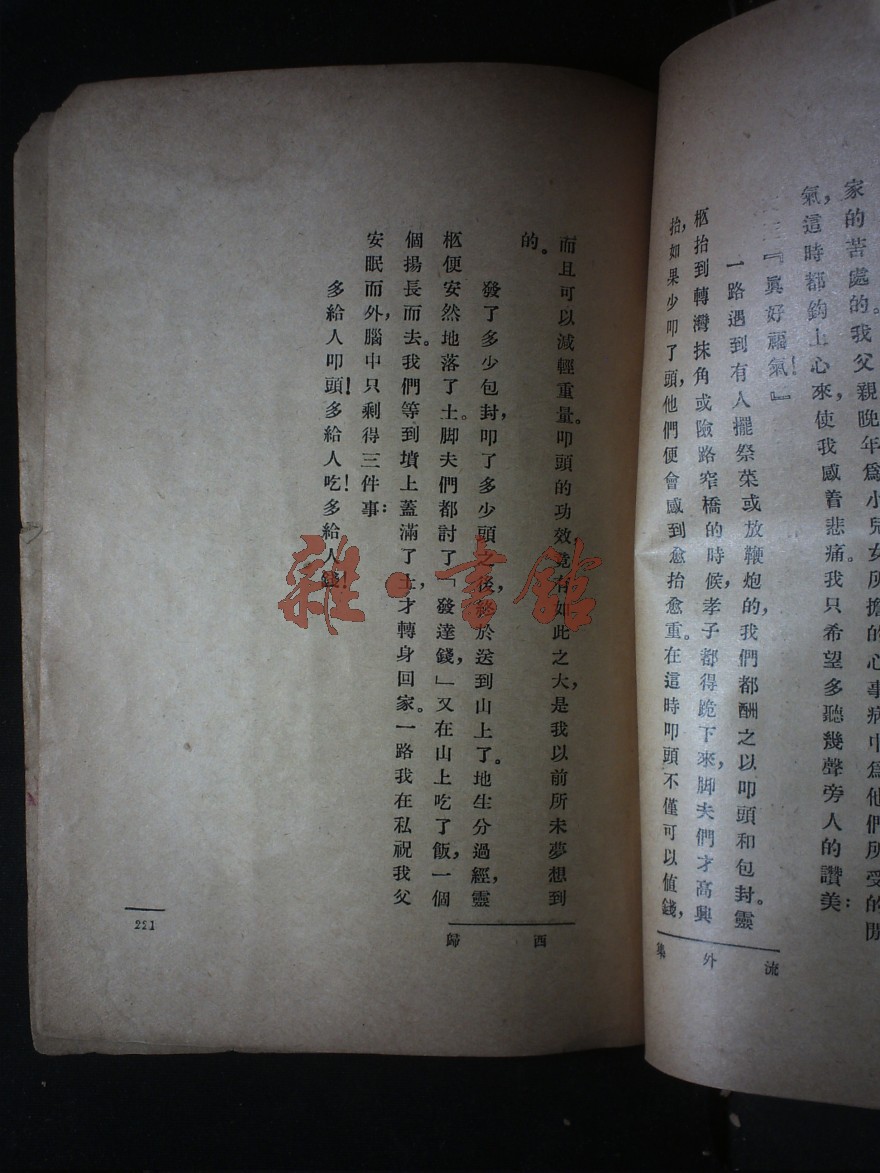 家的苦處的。我父親晚年爲小兒女所擔的心事病中爲他們所受的閒
氣，這時都鈎上心來，使我感着悲痛。我只希望多聽幾聲旁人的讚美：
『眞好福氣！』
一路遇到有人擺祭菜或放鞭炮的，我們都酬之以叩頭和包封。靈
柩抬到轉灣抹角或險路窄橋的時候，孝子都得跪下來，脚夫們才高興
抬，如果少叩了頭，他們便會感到愈抬愈重。在這時叩頭不僅可以値錢，
流外集
而且可以減輕重量。叩頭的功效竟有如此之大，是我以前所未夢想到
的。
發了多少包封，叩了多少頭之後，終於送到山上了。地生分過經，靈
柩便安然地落了土。脚夫們都討了「發達錢，」又在山上吃了飯，一個
個揚長而去。我們等到墳上蓋滿了土，才轉身回家。一路我在私祝我父
安眠而外，腦中只剩得三件事：
多給人叩頭！多給人吃！多給人錢！
西歸
221
雜·書館